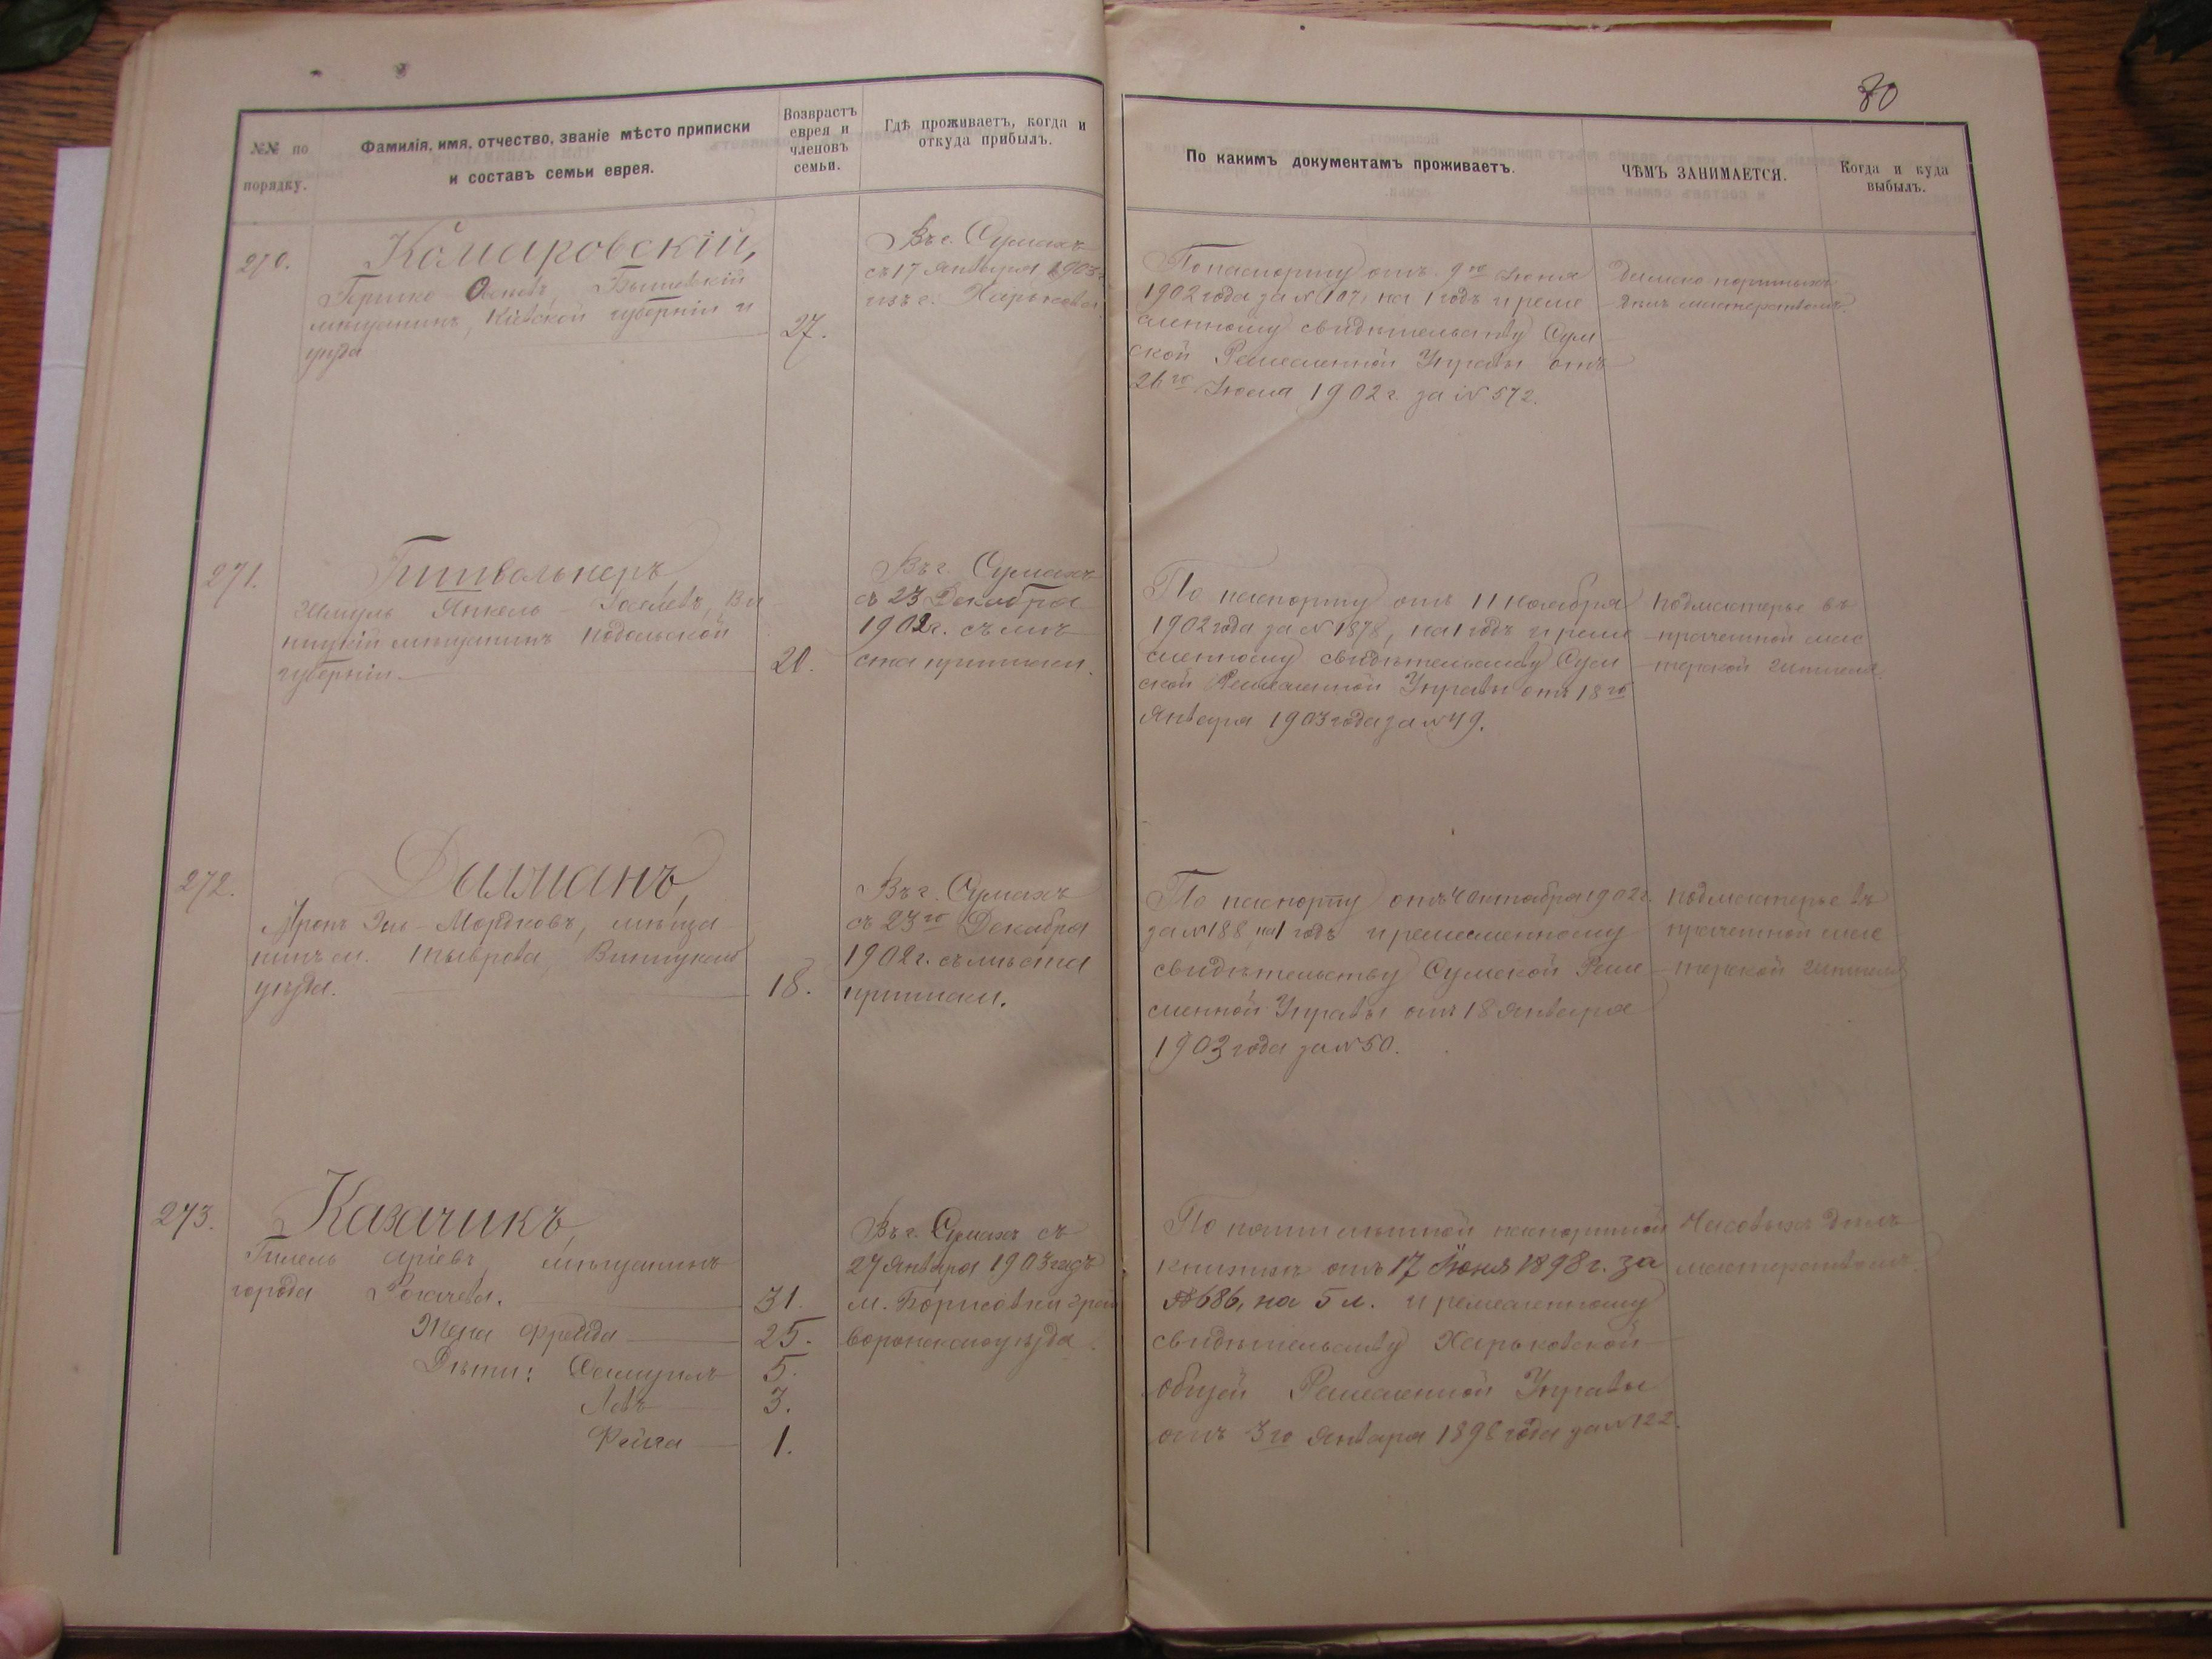 80
№№ по порядку.
Фамилія, имя, отчество, званіе мѣсто приписки
и составъ семьи еврея.
Возврастъ
еврея и
членовъ
семьи.
Гдѣ проживаетъ, когда и
откуда прибылъ.
По какимъ документамъ проживаетъ.
ЧѢМЪ ЗАНИМАЕТСЯ.
Когда и куда
выбылъ.
270.
Комаровскій,
Гершко
мѣщанинъ, Кіевской губерніи и
уѣзда
27.
Въ г. Сумахъ
съ 17 Января 1903 г
изъ г. Харькова
По паспорту отъ 9го Іюня
1902 года за № 107, на 1 годъ и реме
сленному свидѣтельству Сум
ской Ремесленной Управы отъ
26го 1902 г. за № 572.
Дамско портнымъ
дѣлъ мастерствомъ.
271.
Янкель Іоселевъ, Ви
ницкій мѣщанинъ Подольской
губерніи.
20.
Въ г. Сумахъ
съ 23 Декабря
1902 г. съ мѣ
ста приписки.
По паспорту отъ 11 Ноября
1902 года за № 1878, на 1 годъ и реме
сленному свидѣтельству Сум
ской Ремесленной Управы отъ 18го
Января 1903 года за № 49.
подмастерье въ
мас
терской
272.
Дылманъ,
Мордковъ, мѣща
нинъ м. Тыврова, Винницкаго
уѣзда.
18.
Въ г. Сумахъ
съ 23го Декабря
1902 г. съ мѣста
приписки.
По паспорту отъ 4 Октября 1902 г.
за № 188, на 1 годъ и ремесленному
свидѣтельству Сумской Реме
сленной Управы отъ 18 Января
1903 года за № 50.
подмастерье въ
мас
терской
273.
Казачикъ,
Гилель Аріевъ, мѣщанинъ
города Рогачева.
31.
Жена Фрейда
25.
Дѣти: Самуилъ
5.
Левъ
3.
Фейга
1.
Въ г. Сумахъ съ
27 Января 1903 г изъ
м. Борисовки Грай
воронскаго уѣзда.
По пятилѣтней паспортной
книжкѣ отъ 17 Іюня 1898 г. за
№ 686, на 5 л. и ремесленному
свидѣтельству Харьковской
общей Ремесленной Управы
отъ 3го Января 1898 года за № 122.
Часовыхъ дѣлъ
мастерствомъ.